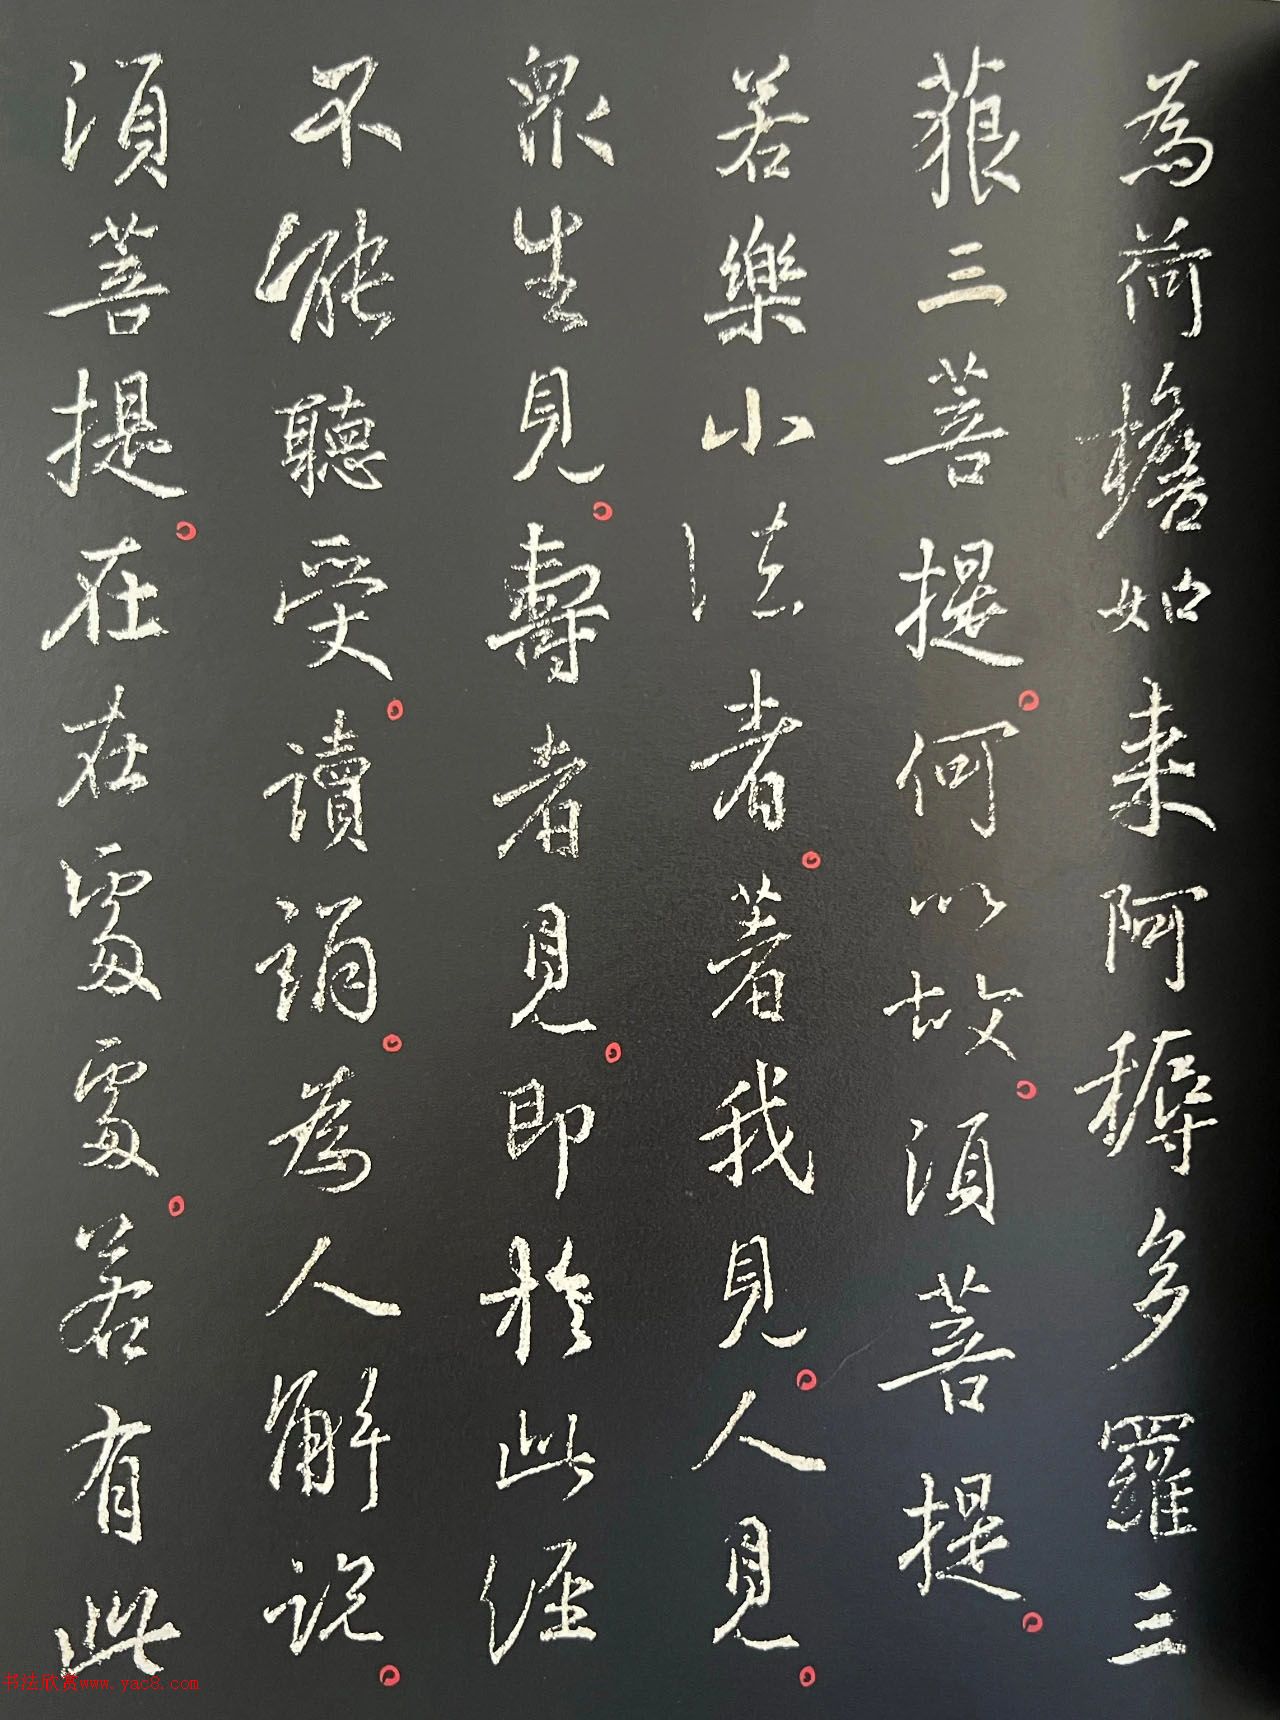 為荷擔如来阿耨多羅三
藐三菩提。何以故。須菩提。
若樂小法者。著我見。人見。
衆生見。壽者見。即於此經
不能聽受。讀誦。為人解説。
須菩提。在在處處。若有此
书法欣赏www.yac8.com